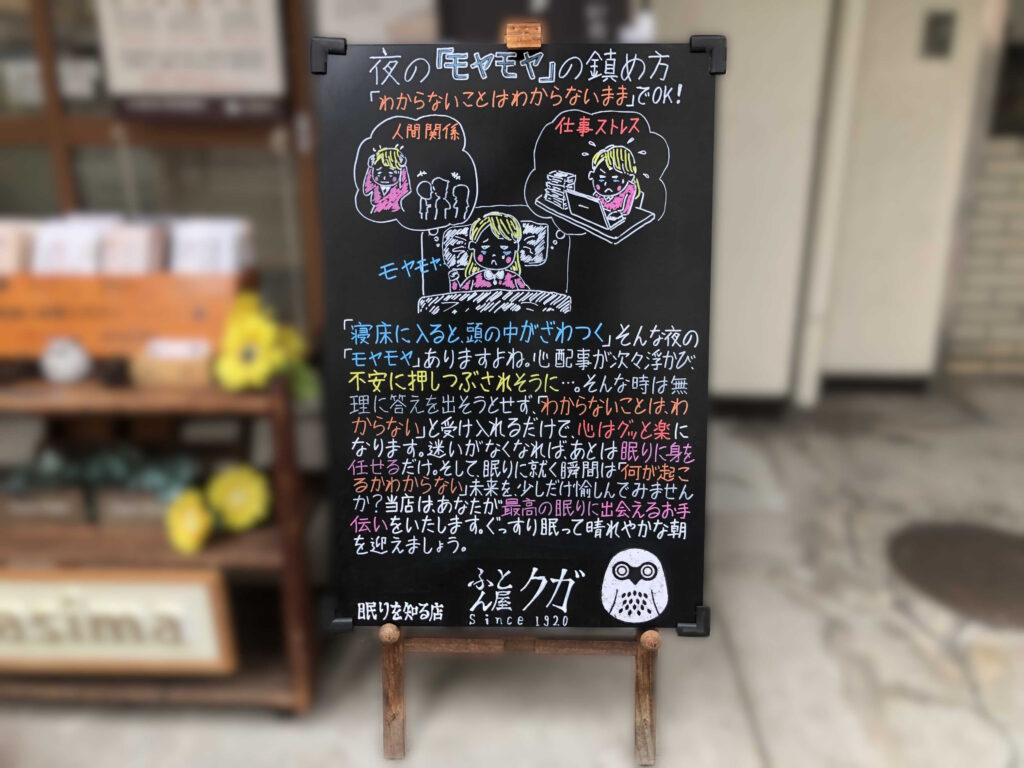 夜の『モヤモヤ』の鎮め方
「わからないことはわからないまま」でOK!
人間関係
仕事ストレス
モヤモヤ
「寝床に入ると、頭の中がざわつく」そんな夜の
「モヤモヤ」ありますよね。心配事が次々浮かび、
不安に押しつぶされそうに…。そんな時は無
理に答えを出そうとせず、「わからないことは、わ
からない」と受け入れるだけで、心はグッと楽に
なります。迷いがなくなれば、あとは眠りに身を
任せるだけ。そして、眠りに就く瞬間は「何が起こ
るかわからない」未来を、少しだけ愉しんでみません
か?当店は、あなたが最高の眠りに出会えるお手
伝いをいたします。ぐっすり眠って晴れやかな朝
を迎えましょう。
眠りを知る店
ふとん屋クガ
Since 1920
asima